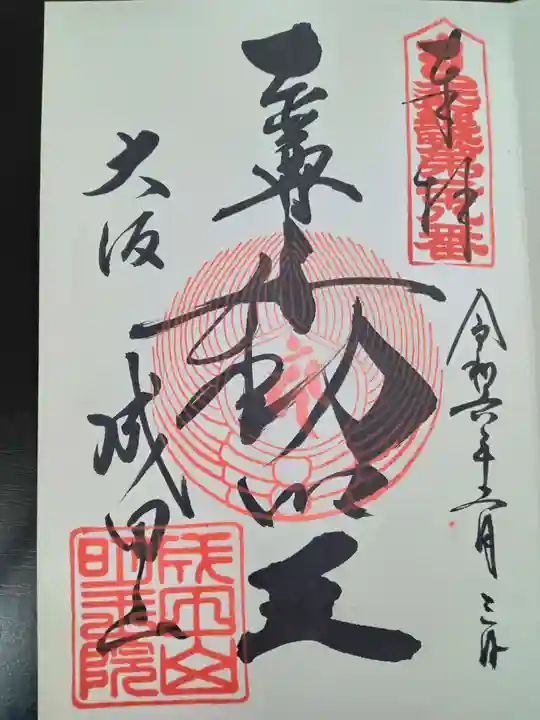 奉拝
令和六年二月三日
尊不動明王
大阪 成田山
成田山
明王院